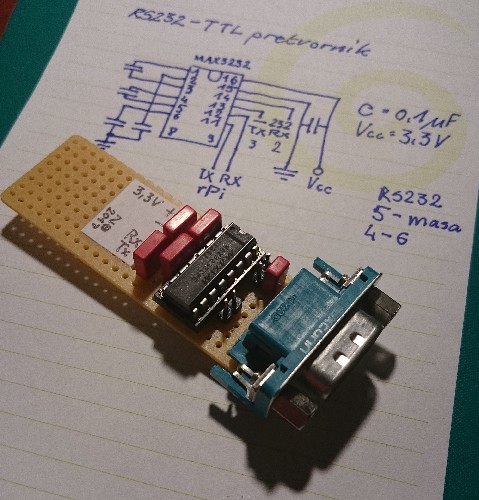 RS232-TTL pretvornik
MAX3232
1 16
2 15
3 14
4 13
5 12
6 11
8 9
TX 232 RX
3 2
TX RX
rPi
Vcc
C = 0,1 µF
Vcc = 3,3V
RS232
5 - masa
4-6
3,3V +
-
Rx
Tx